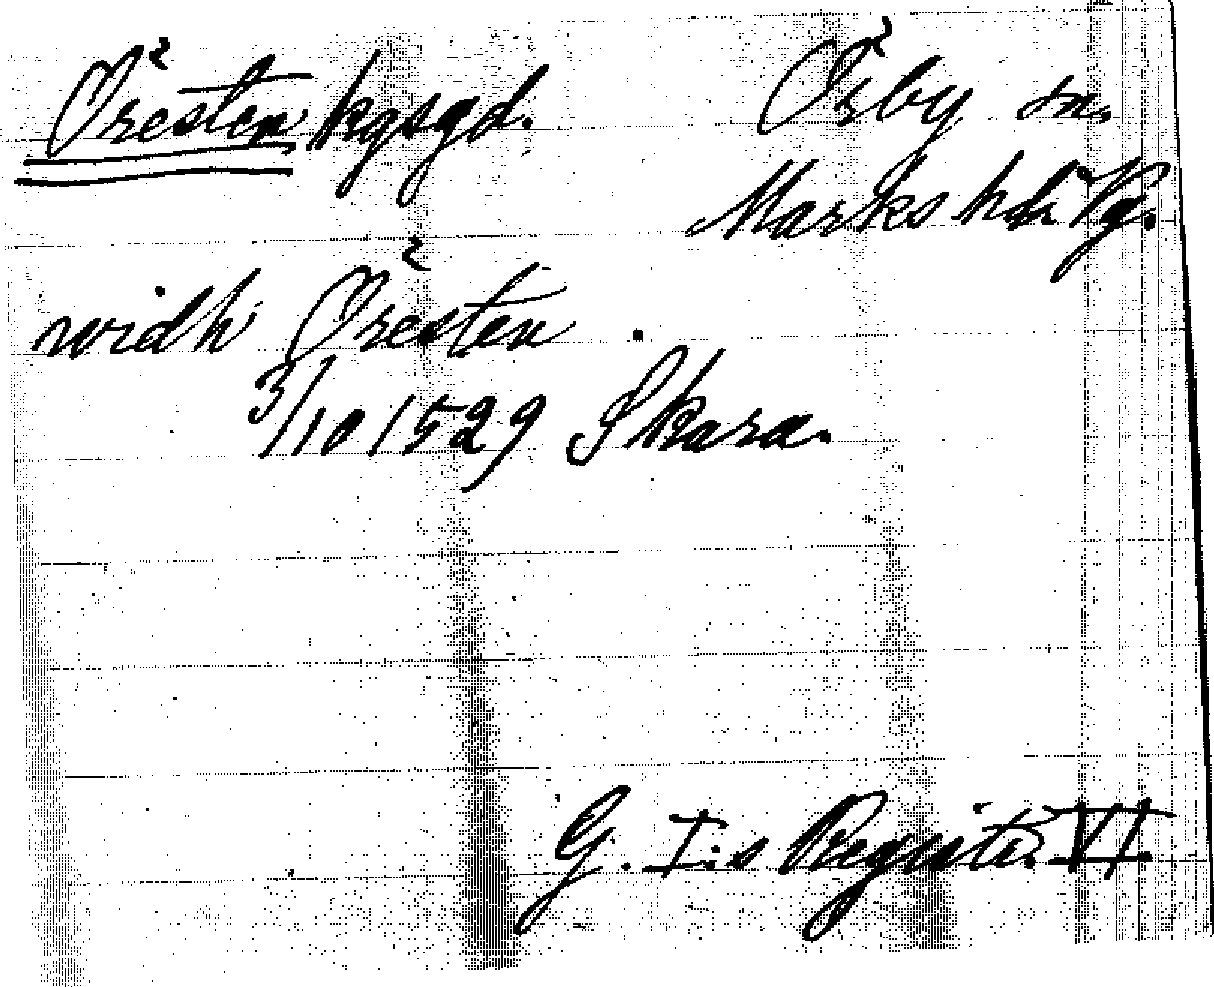 Öresten kgsgd.
Örby sn.
Marks hd. Vg.
widh Öresten.
3/10 1529 Skara.
G. I:s Registr. VI